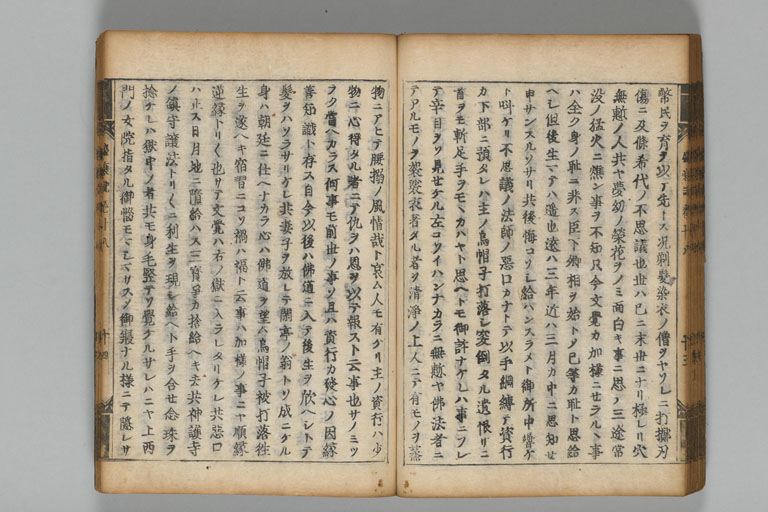 幣民ヲ育ヲ以テ先ース況剃髪染衣ノ僧ヲヤソレニ打擲刃
傷ニ及條希代ノ不思議也世ハ已ニ末世ニナリ極レリ穴
無慙ノ人共ヤ夢幻ノ榮花ヲノミ面白キ事ニ思ノ三途常
没ノ猛火ニ燋ン事ヲ不知只今文覺カ加様ニセラルヽ事
ハ全ク身ノ耻ニ非ス臣下卿相ヲ始トノ已等カ耻ト思給
ヘシ但後生マテハ遙也遠ハ三年近ハ三月カ中ニ思知セ
申サンスルソサリ共後悔コソレ給ハンスラメト御所中響ケ
ト叫ケリ不思議ノ法師ノ惡口カナトテ以手綱縛テ資行
カ下部ニ預タレハ主ノ烏帽子打落レ突倒タル遺恨リニ
首ヲモ斬足手ヲモヽカハヤト思ヘトモ御許ナケレハ事ニフレ
テ辛目ヲソ見セケル左コソイハンナカラニ無慙ヤ佛法者ニ
テアルモノヲ袈裟衣者タル者ヲ清浄ノ上人ニテ有モノヲ落
物ニアヒテ腰掻ノ風情哉ト哀ム人モ有ケリ主ノ資行ハ少
物ニ心得タル者ニテ仇ヲハ恩ヲ以テ報スト云事也サノミツ
ラク當ヘカラス何事モ前世ノ事ソ且ハ資行カ發心ノ因縁
善知識ト存ス自今以後ハ佛道ニ入テ後生ヲ欣ヘシトテ
髪ヲハソラサリケレ共妻子ヲ放レテ閑亭ノ翁トソ成ニケル
身ハ朝廷ニ仕ヘナカラ心ハ佛道ヲ望ム烏帽子被打落往
生ヲ遂ヘキ宿習ニコソ禍ハ福ト云事ハ加様ノ事ニヤ順縁
逆縁トリ〱也サテ文覺ハ右ノ獄ニ入ラレタリケレ共惡口
ハ止ス日月地ニ墮給ハス三寳爭カ捨給ヘキ去共神護寺
ノ鎮守護法トリ〱ニ利生ヲ現シ給ヘト手ヲ合セ念珠ヲ
捻ケレハ獄中ノ者共モ身毛竪テソ覺ケルサレハニヤ上西
門ノ女院指タル御惱モ